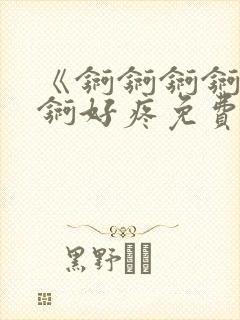 《锕锕锕锕
锕好疼免費
黑野